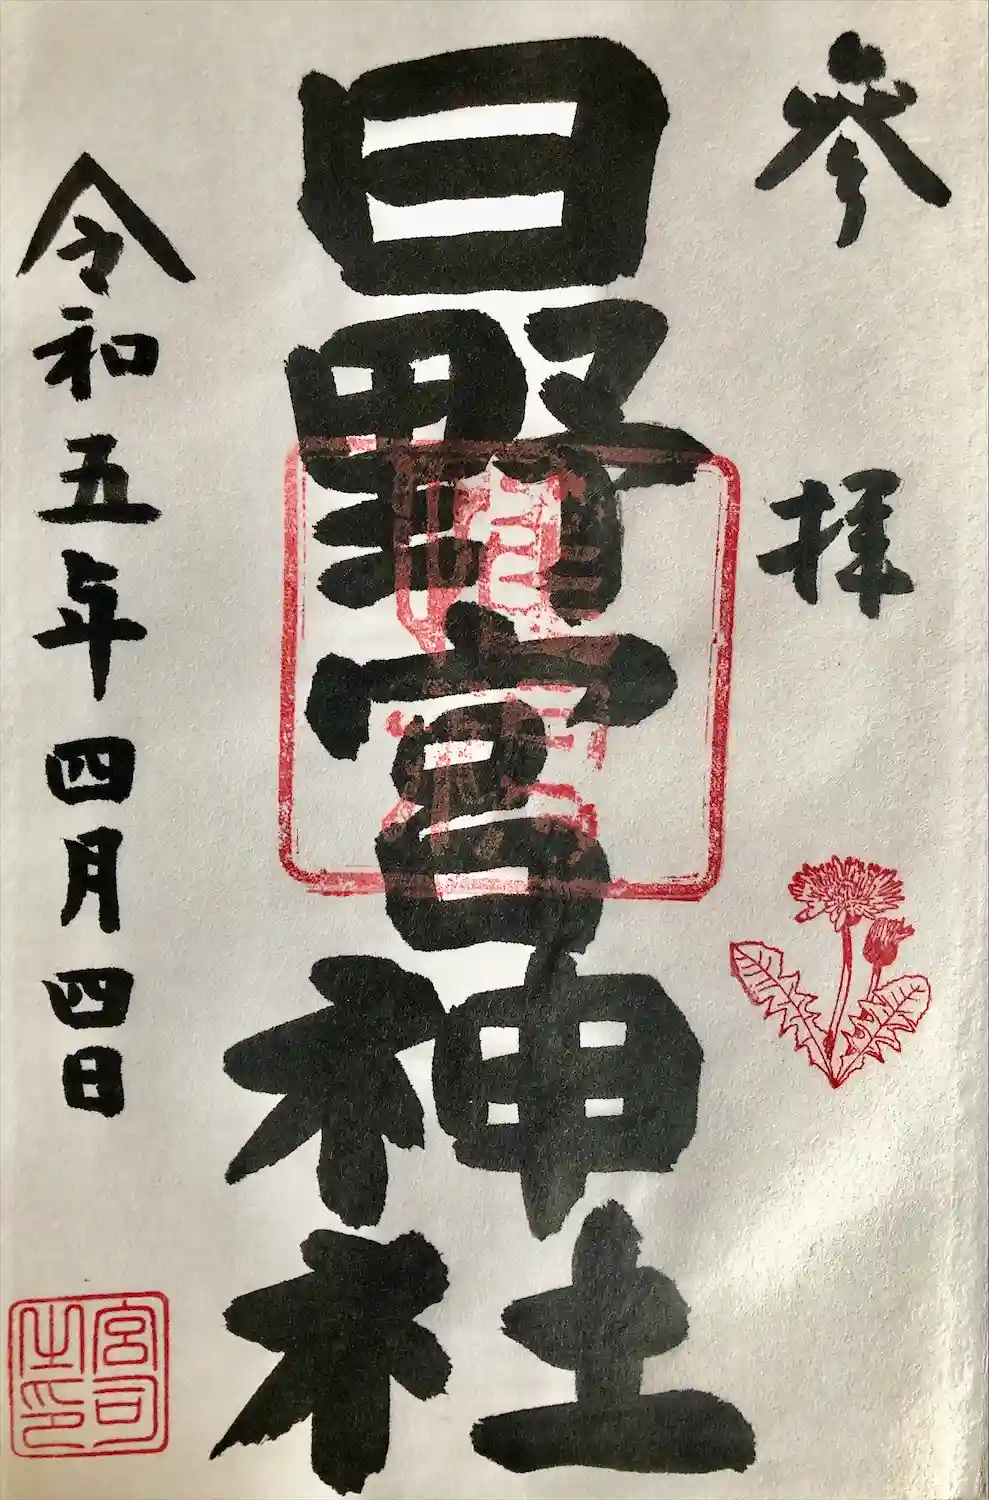 参拝
日野宮神社
令和五年四月四日
宮司之印